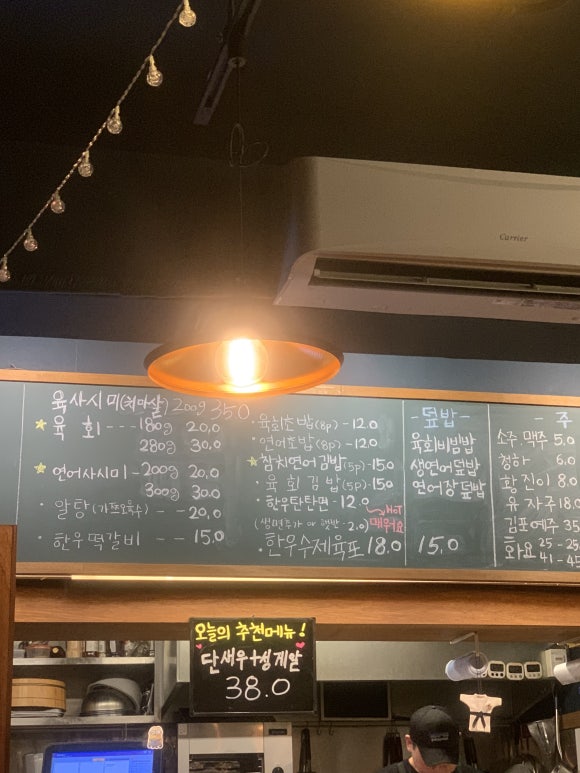 Carrier
육사시미(치마살) 200g 35.0
★ 육 회 --- 180g 20.0
280g 30.0
★ 연어사시미 - 200g 20.0
300g 30.0
· 알탕 -- 20.0
· 한우떡갈비 -- 15.0
· 육회초밥(8p) - 12.0
· 연어초밥(8p) - 12.0
★ 참치연어김밥(5p) - 15.0
· 육회김밥(5p) - 15.0
· 한우탄탄면 - 12.0
HOT
매워요
2.0)
· 한우수제육포 18.0
- 덮밥 -
육회비빔밥
생연어덮밥
연어장덮밥
15.0
- 주
소주.맥주 5.0
청하 6.0
황진이 8.0
유자주 18.0
김포예주 35
화요 25-25
41-45
오늘의 추천메뉴!
단새우+성게알
38.0